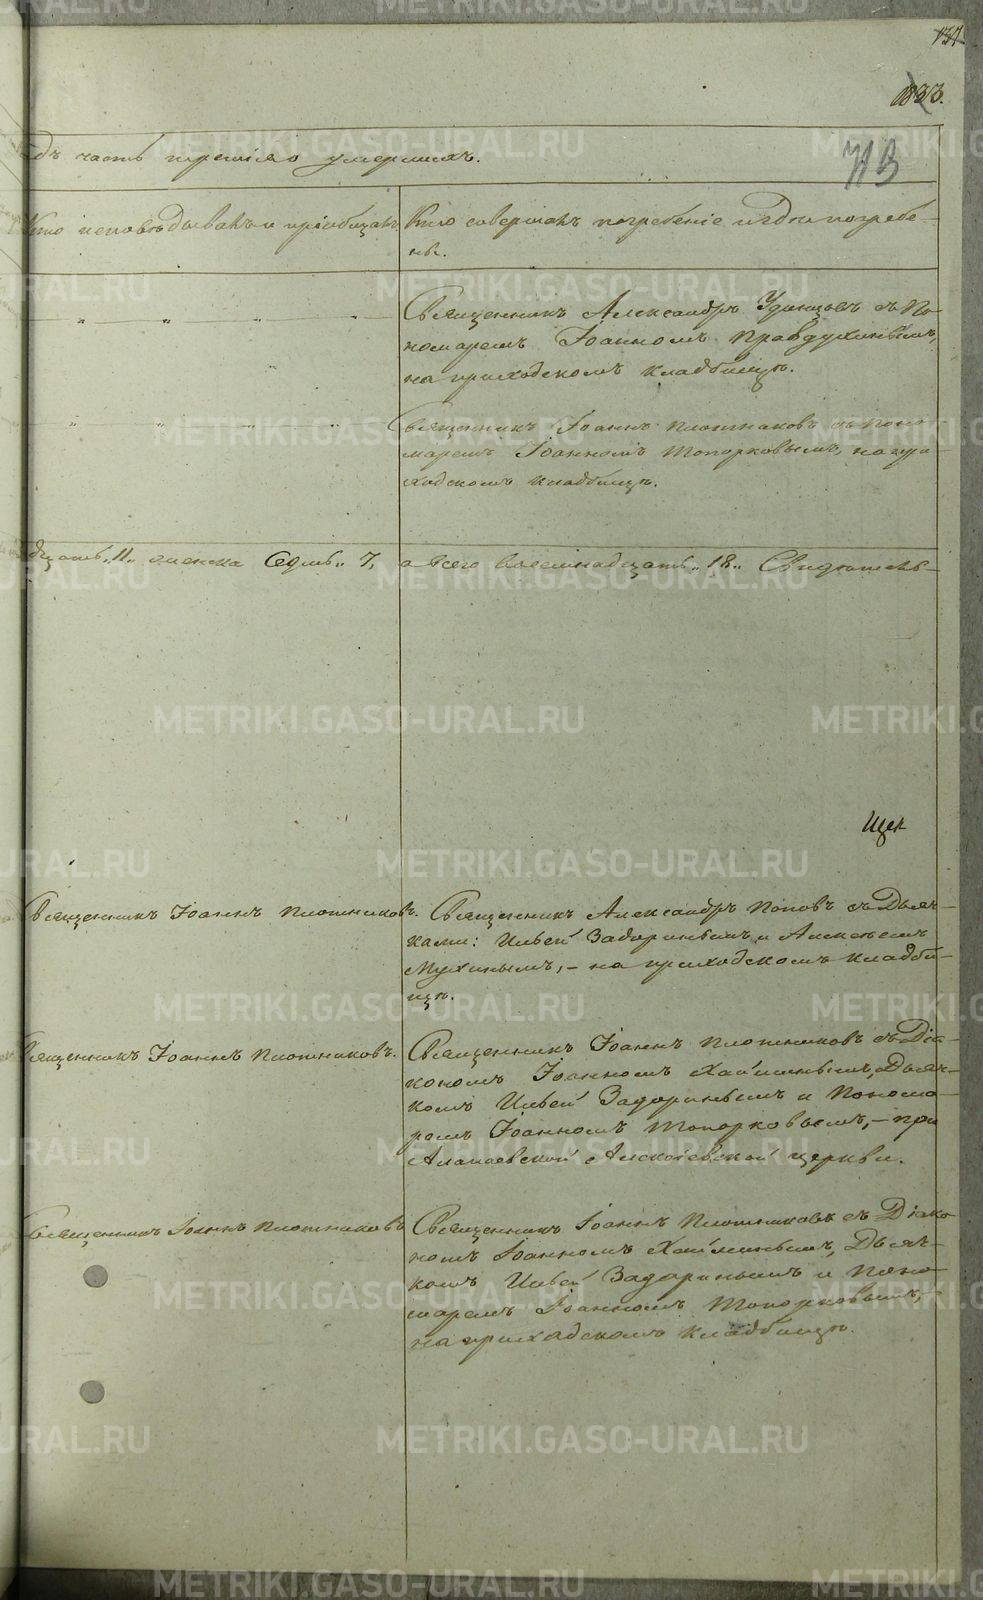 137
1833.
713
дъ часть третія о умершихъ.
Кто исповѣдывалъ и пріобщалъ
Кто совершалъ погребеніе и гдѣ погребе-
ны.
Священникъ Александръ Удинцовъ съ По-
номаремъ Іоанномъ Правдухинымъ,
на приходскомъ кладбищѣ.
Священникъ Іоаннъ Плотниковъ съ Поно-
маремъ Іоанномъ Топорковымъ, на при-
ходскомъ кладбищѣ.
дцать „11„ женска Седмь „ 7, а всего восемнадцать „ 18„ Свидѣтель-
Священникъ Іоаннъ Плотниковъ.
Священникъ Александръ Поповъ съ Дьяч-
ками: Ильей Задоринымъ и Алексѣемъ
Мухинымъ, – на приходскомъ кладби-
щѣ.
Священникъ Іоаннъ Плотниковъ.
Священникъ Іоаннъ Плотниковъ съ Діа-
кономъ Іоанномъ Хайминымъ, Дьяч-
комъ Ильей Задоринымъ и Понома-
ремъ Іоанномъ Топорковымъ, – при
Алапаевской Алексіевской церкви.
Священникъ Іоаннъ Плотниковъ
Священникъ Іоаннъ Плотниковъ съ Діако-
номъ Іоанномъ Хайминымъ, Дьяч-
комъ Ильей Задоринымъ и Поно-
маремъ Іоанномъ Топорковымъ, –
на приходскомъ кладбищѣ.
METRIKI.GASO-URAL.RU